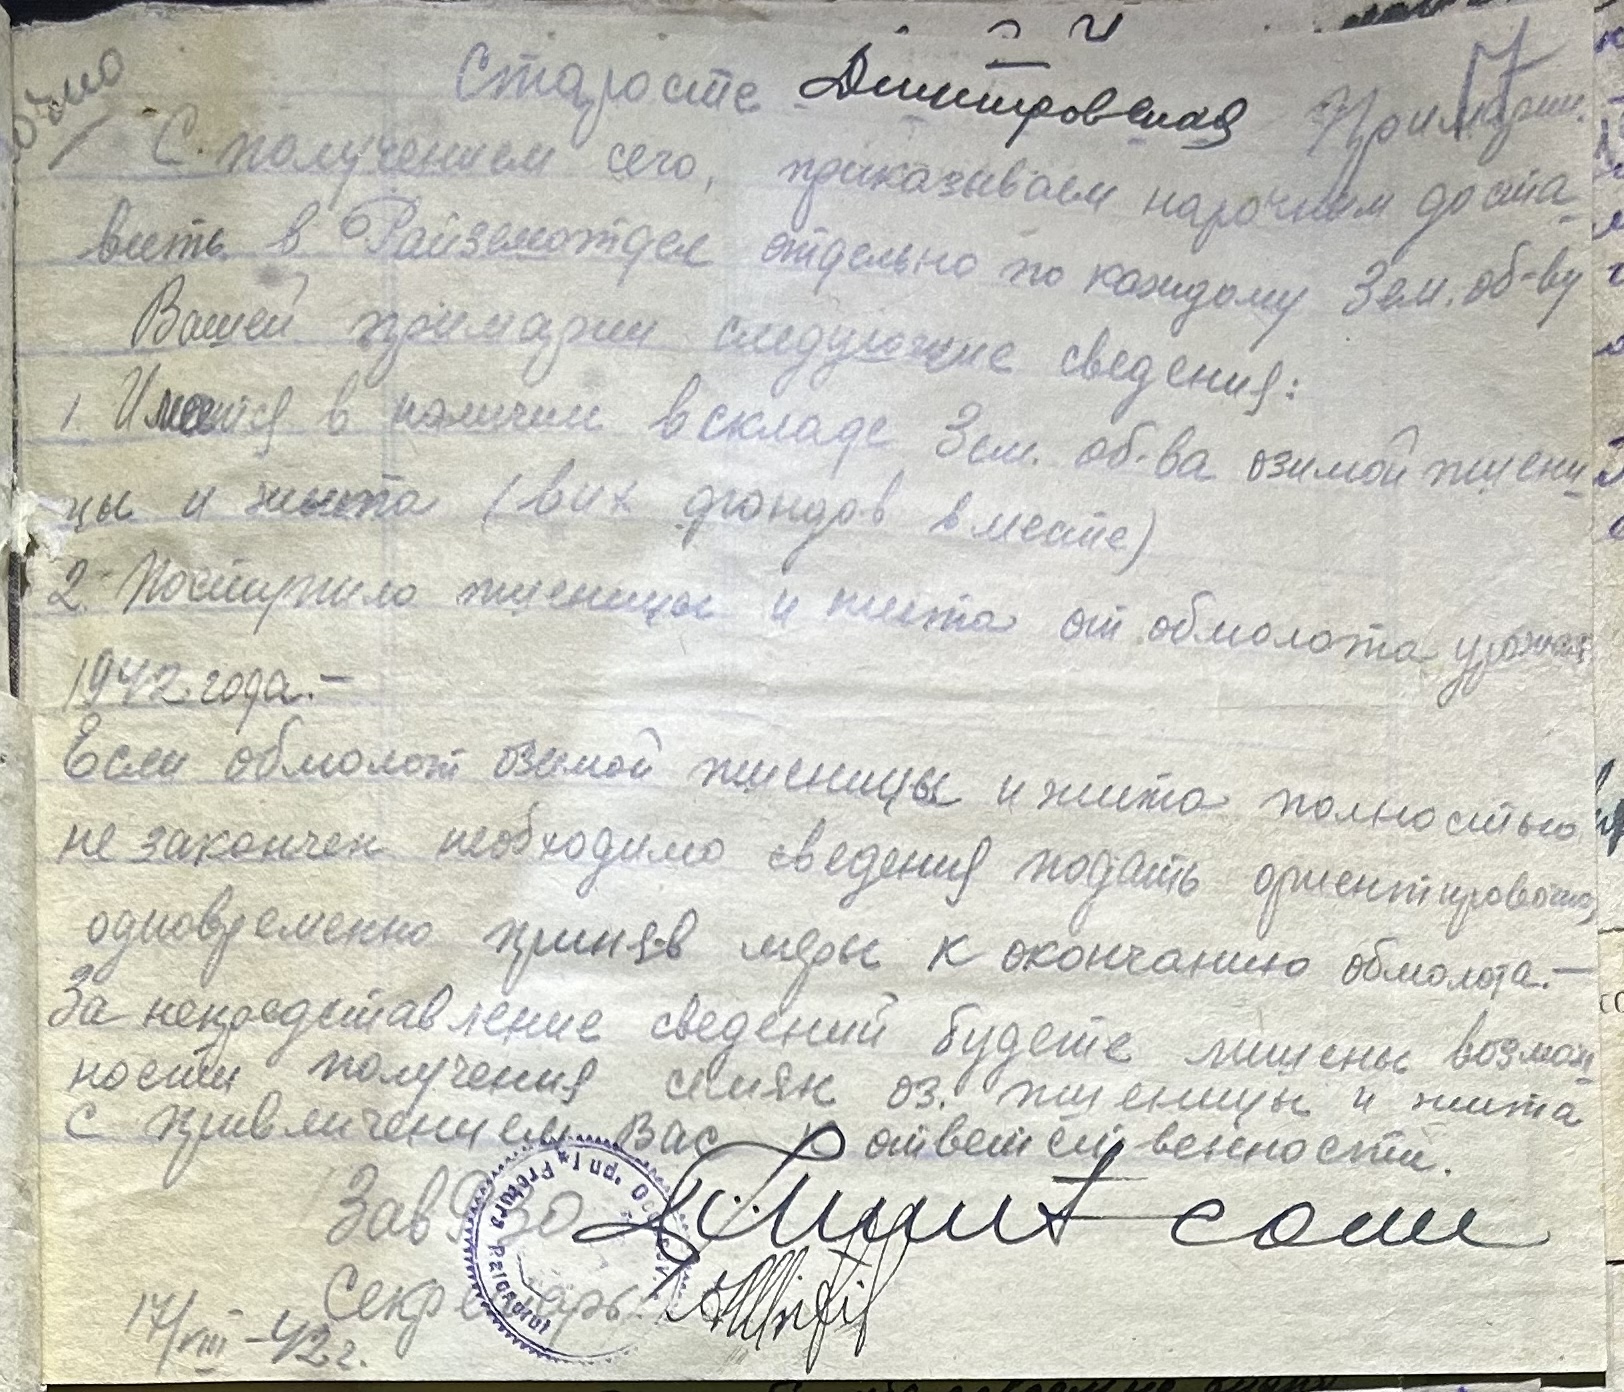 Старосте Димитровская Примарии
С получением сего, приказываем нарочным доста-
вить в Райземотдел отдельно по каждому Зем. об-ву
Вашей примарии следующие сведения:
1. Имеется в наличии в складе Зем. об-ва озимой пшени-
цы и жита (вих фондов вместе)
2. Поступило пшеницы и жита от обмолота урожая
1942 года.-
Если обмолот озимой пшеницы и жита полностью
не закончен необходимо сведения подать ориентировочно,
одновременно приняв меры к окончанию обмолота.-
За непредставление сведений будете лишены возмож-
ности получения семян оз. пшеницы и жита
с привличением Вас к ответственности.
Зав Рзо
Секретарь
17/VIII-42 г.